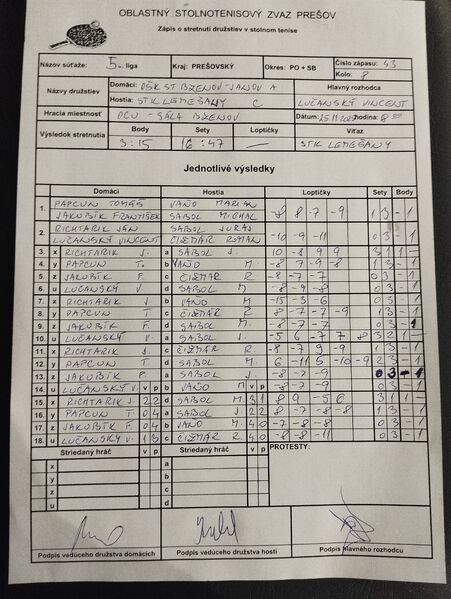 OBLASTNÝ STOLNOTENISOVÝ ZVAZ PREŠOV
Zápis o stretnutí družstiev v stolnom tenise
Názov súťaže: 5. liga Kraj: PREŠOVSKÝ Okres: PO + SB Číslo zápasu: 43
Kolo: 8
Názvy družstiev Domáci: OŠK ST BZENOV-JANOV A Hlavný rozhodca
Hostia: STK LEMEŠANY C LUČANSKÝ VINCENT
Hracia miestnosť OCU - SÁLA BZENOV Dátum: hodina:
Výsledok stretnutia Body Sety Loptičky Víťaz
3:15 16:47 STK LEMEŠANY
Jednotlivé výsledky
Domáci Hostia Loptičky Sety Body
1. PAPCUN TOMÁŠ VAŇO MARIAN
JAKUBÍK FRANTIŠEK SABOL MICHAL -8 8 -7 -9 1 3 - 1
2. RICHTARIK JÁN SABOL JURAJ
LUČANSKÝ VINCENT ČIŽMÁR ROMAN -10 -9 -11 0 3 - 1
3. x RICHTARIK J. a SABOL J. 10 -8 9 9 3 1 1 -
4. y PAPCUN T. b VAŇO M. -8 7 -9 -8 1 3 - 1
5. z JAKUBÍK F. c ČIŽMÁR R. -8 -7 -7 0 3 - 1
6. u LUČANSKÝ V. d SABOL M. -8 -9 -8 0 3 - 1
7. x RICHTARIK J. b VAŇO M. -15 -3 -6 0 3 - 1
8. y PAPCUN T. c ČIŽMÁR R. -8 -7 7 -9 1 3 - 1
9. z JAKUBÍK F. d SABOL M. -8 -7 -7 0 3 - 1
10. u LUČANSKÝ V. a SABOL J. -5 6 -7 7 8 3 2 1 -
11. x RICHTARIK J. c ČIŽMÁR R. -8 -7 9 -9 1 3 - 1
12. y PAPCUN T. d SABOL M. 6 -11 5 -10 -9 2 3 - 1
13. z JAKUBÍK F. a SABOL J. -8 -7 -9 0 3 - 1
14. u LUČANSKÝ V. v p b VAŇO M. v p -8 -7 -9 0 3 - 1
15. x RICHTARIK J. 2 2 d SABOL M. 3 1 8 9 -5 6 3 1 1 -
16. y PAPCUN T. 0 4 a SABOL J. 2 2 8 -7 -8 -8 1 3 - 1
17. z JAKUBÍK F. 0 4 b VAŇO M. 4 0 -7 -8 -8 0 3 - 1
18. u LUČANSKÝ V. 1 3 c ČIŽMÁR R. 4 0 -8 -8 -11 0 3 - 1
Striedaný hráč v p Striedaný hráč v p PROTESTY:
x a
y b
z c
u d
Podpis vedúceho družstva domácich Podpis vedúceho družstva hostí Podpis hlavného rozhodcu